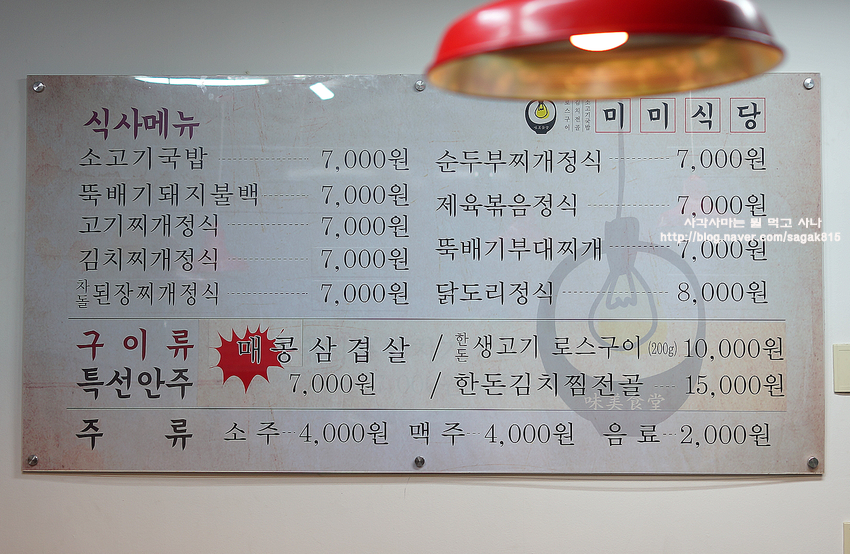 식사메뉴
소고기국밥
로스구이
김치전골
미미식당
소고기국밥 7,000원 순두부찌개정식 7,000원
뚝배기돼지불백 7,000원 제육볶음정식 7,000원
고기찌개정식 7,000원
김치찌개정식 7,000원 뚝배기부대찌개 7,000원
차돌된장찌개정식 7,000원 닭도리정식 8,000원
사각사마는 뭘 먹고 사나
http://blog.naver.com/sagak815
구이류 매콩삼겹살 / 한돈생고기 로스구이(200g) 10,000원
특선안주 7,000원 / 한돈김치찜전골 15,000원
味美食堂
주류 소주 4,000원 맥주 4,000원 음료 2,000원